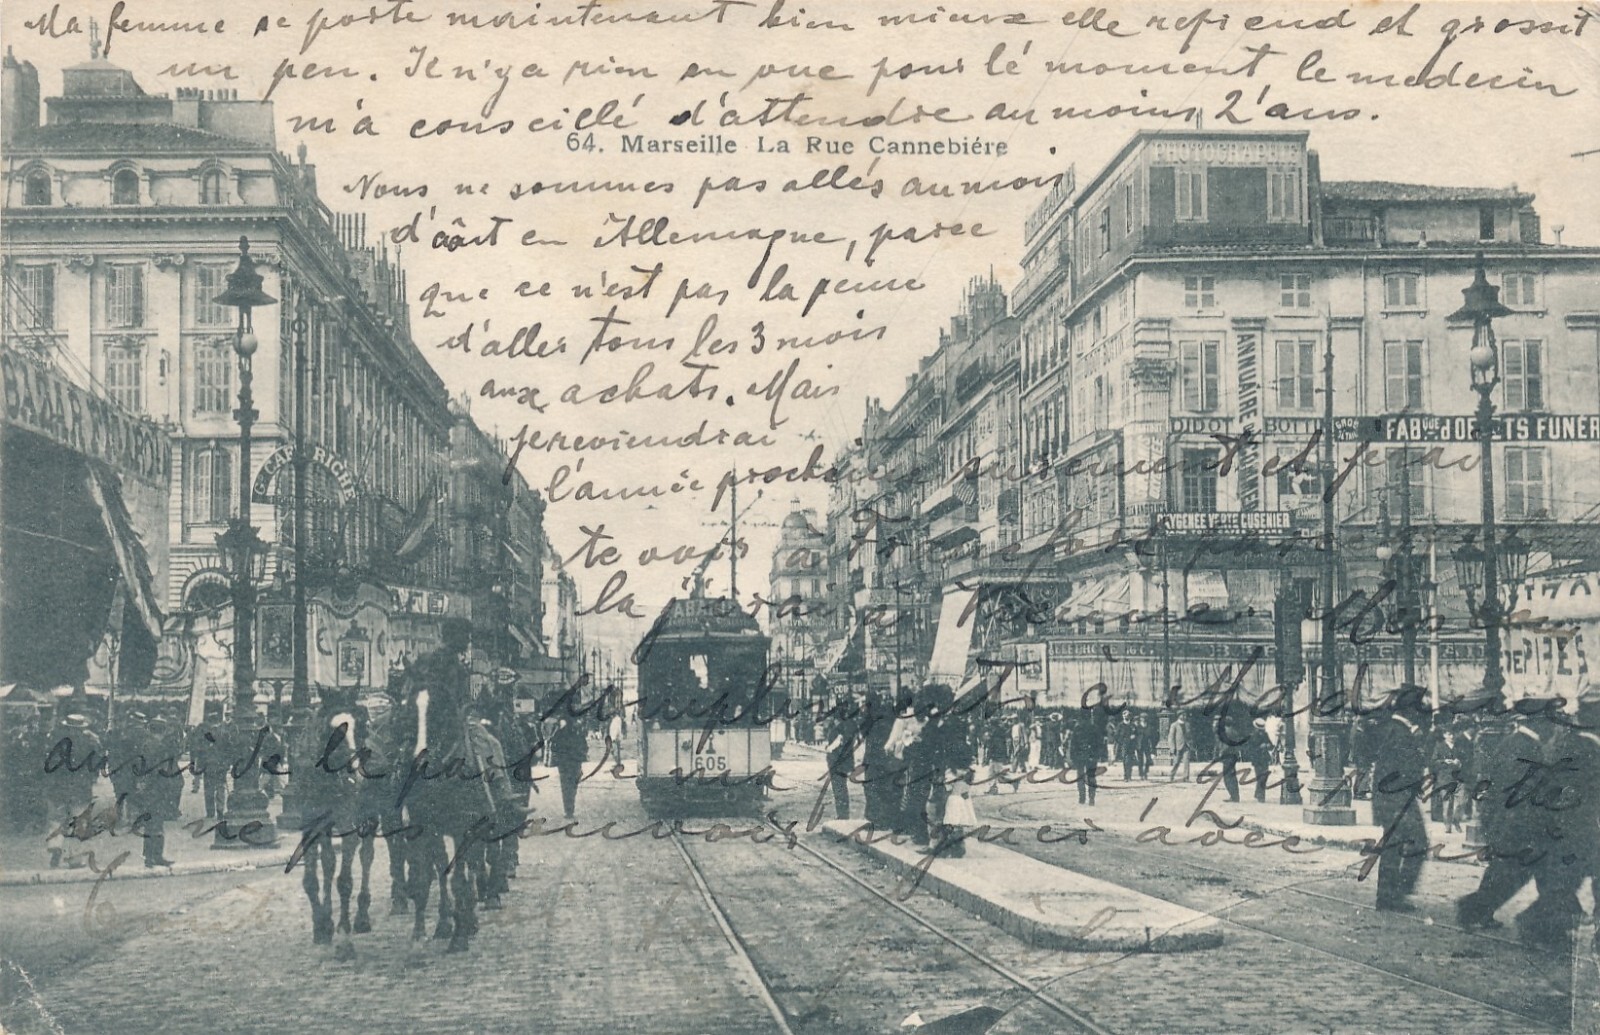 Ma femme se porte maintenant bien mieux elle reprend et grossit
un peu. Il n'y a rien en vue pour lé moment, le medecin
m'a conseillé d'attendre au moins 2 ans.
64. Marseille La Rue Cannebiére
Nous ne sommes pas allés au mois
d'août en Allemagne, parce
que ce n'est pas la peine
d'aller tous les 3 mois
aux achats. Mais
je reviendrai
l'année prochaine surement et j'irai
te voir à Francfort
la j'irai à Vienne. Mes
compliments à Madame
aussi de la part de ma femme qui regrette
de ne pas pouvoir signer avec moi.
PHOTOGRAPHIE
BAZAR
Gd CAFÉ RICHE
DIDOT BOTTIN
ANNUAIRE DU COMMERCE
FABque d'OBJETS FUNER
OXYGENEE VERTE CUSENIER
605
DE PIPES